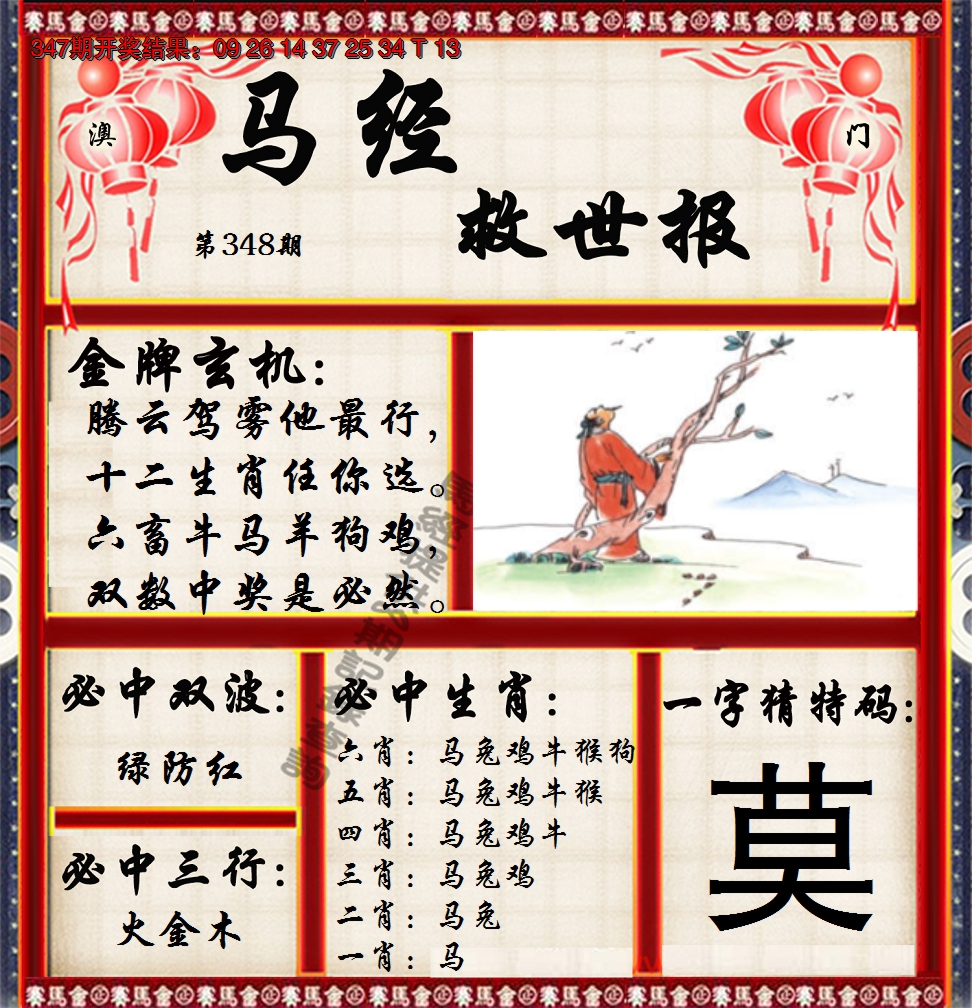 賽馬會
347期开奖结果：09 26 14 37 25 34 T 13
澳
门
马经
救世报
第348期
金牌玄机：
腾云驾雾他最行，
十二生肖任你选。
六畜牛马羊狗鸡，
双数中奖是必然。
必中双波：
绿防红
必中三行：
火金木
必中生肖：
六肖：马兔鸡牛猴狗
五肖：马兔鸡牛猴
四肖：马兔鸡牛
三肖：马兔鸡
二肖：马兔
一肖：马
一字猜特码：
莫